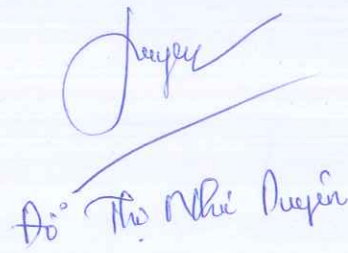 Duyên
Đỗ Thị Như Duyên